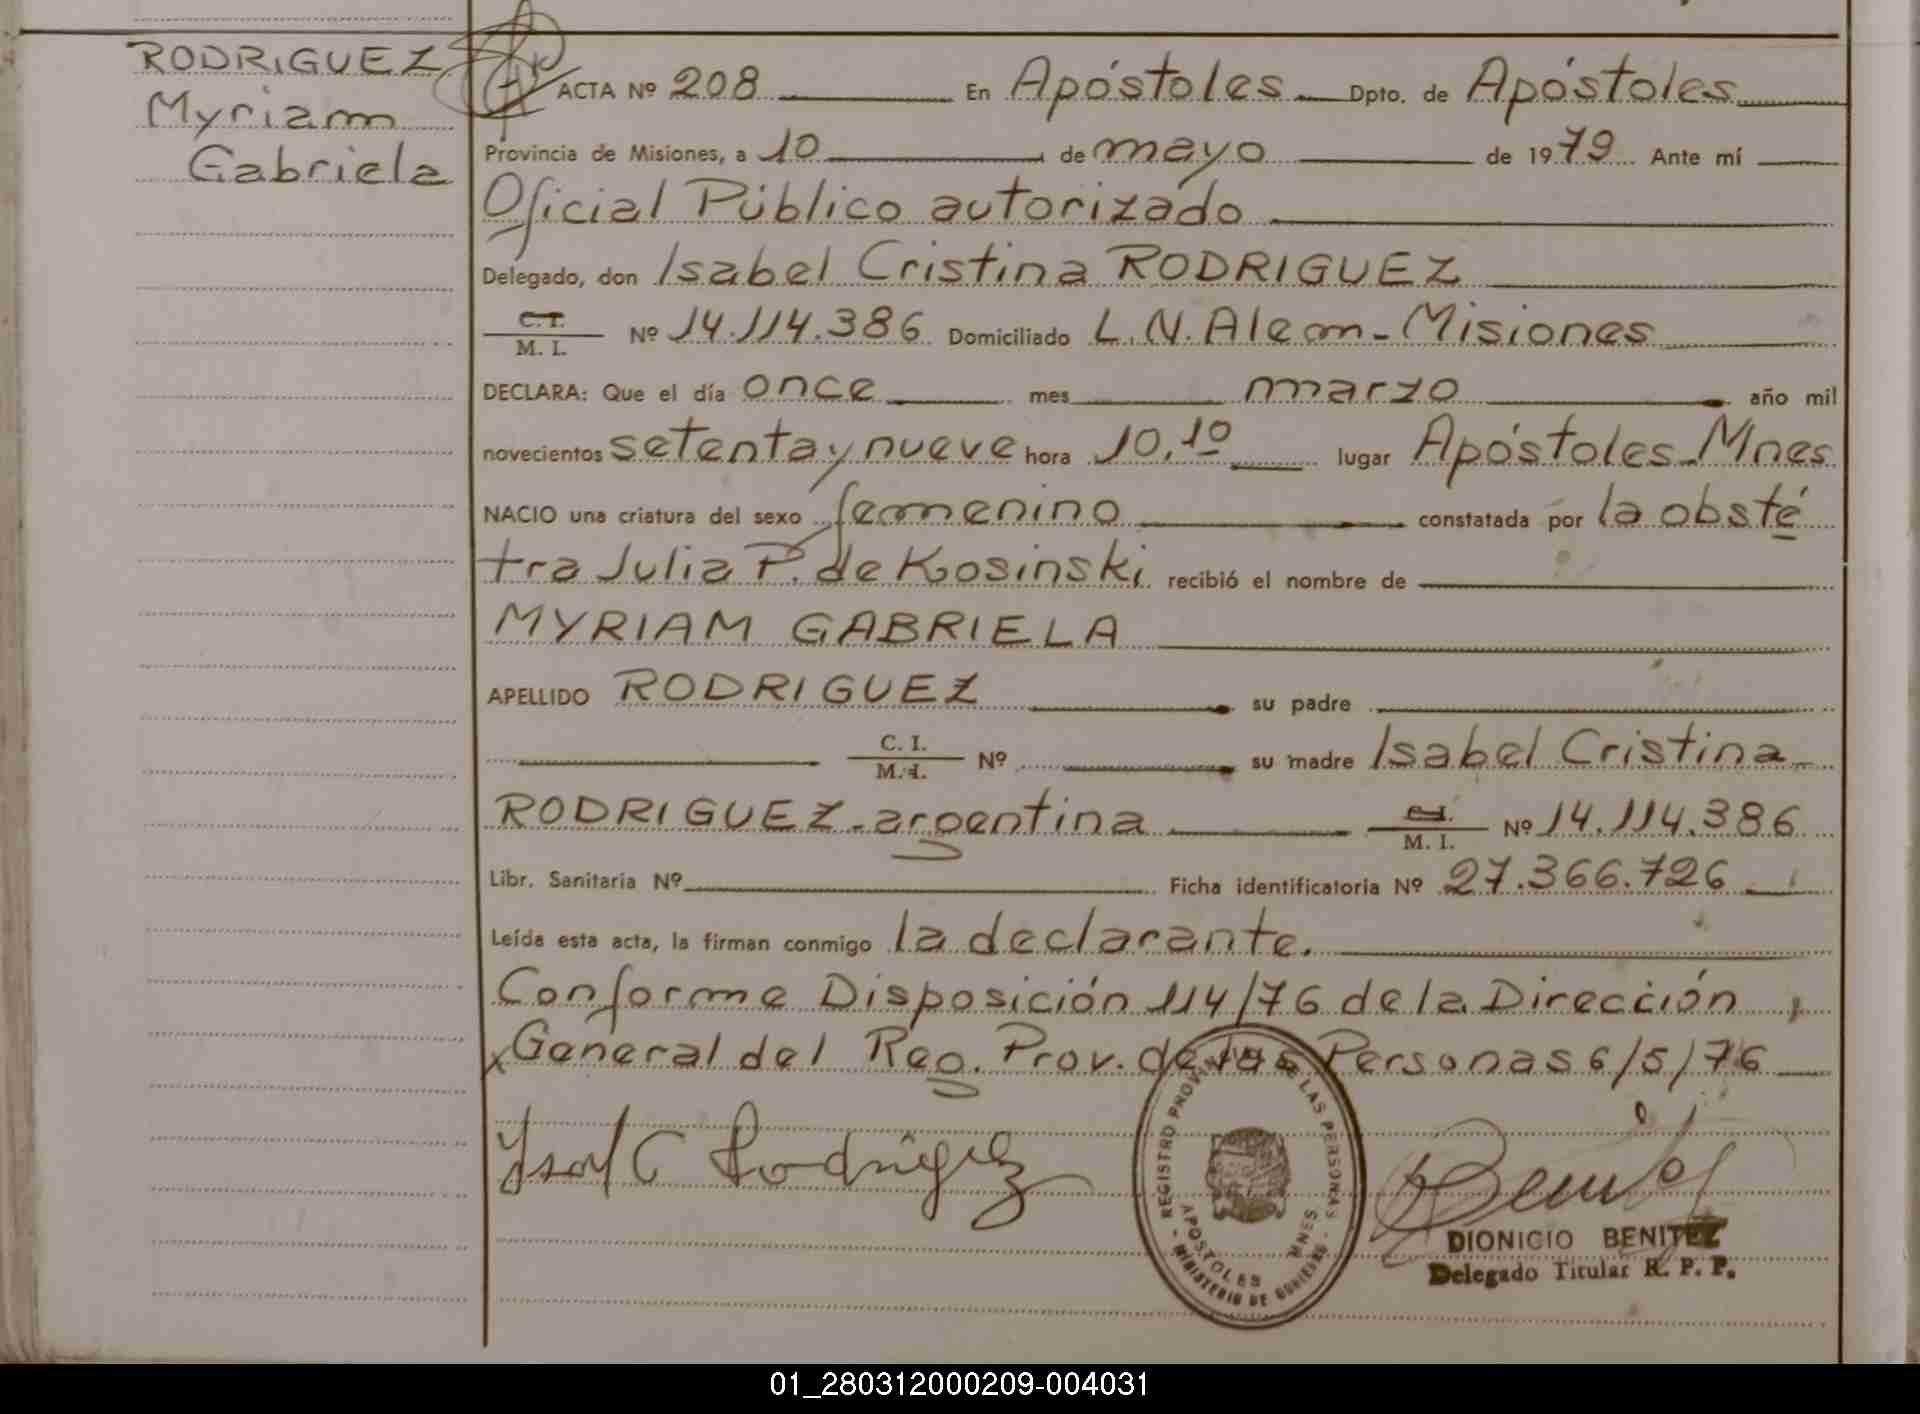 RODRIGUEZ
Myriam
Gabriela
ACTA Nº 208 En Apóstoles Dpto. de Apóstoles
Provincia de Misiones, a 10 de mayo de 1979 Ante mí
Oficial Público autorizado
Delegado, don Isabel Cristina RODRIGUEZ
C. I.
M. I. Nº 14.114.386 Domiciliado L.N. Alem - Misiones
DECLARA: Que el día once mes marzo año mil
novecientos setenta y nueve hora 10.10 lugar Apóstoles - Mnes
NACIO una criatura del sexo femenino constatada por la obsté
tra Julia P. de Kosinski recibió el nombre de
MYRIAM GABRIELA
APELLIDO RODRIGUEZ su padre
C. I.
M. I. Nº su madre Isabel Cristina
RODRIGUEZ - argentina C. I.
M. I. Nº 14.114.386
Libr. Sanitaria Nº Ficha identificatoria Nº 27.366.726
Leída esta acta, la firman conmigo la declarante.
Conforme Disposición 114/76 de la Dirección
General del Reg. Prov. de las Personas 6/5/76
Isabel C Rodriguez
REGISTRO PROVINCIAL DE LAS PERSONAS
APOSTOLES MNES
- MINISTERIO DE GOBIERNO -
DIONICIO BENITEZ
Delegado Titular R. P. P.
01_280312000209-004031